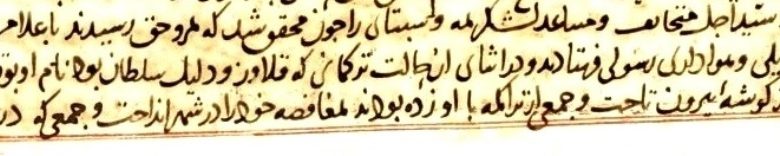 سید اجل متخالف و مساعد لشکر همه و سبتای را چون محقق شد که هر دو حق رسیدند باعلام
یلی و هواداری رسولی فرستادند و در اثنای ان حالت ترکمانی که قلاوز و دلیل سلطان بود نام او بوقا
کوشه بیرون تاخت و جمعی از تراکمه با او زده بودند مغافصه خود را در شهر انداخت و جمعی که در